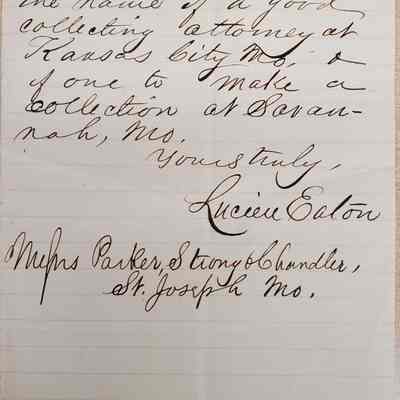 the name of a good
collecting attorney at
Kansas City Mo. &
of one to make a
collection at Savan-
nah, Mo.
Yours truly,
Lucien Eaton
Messrs Parker, Strong & Chandler,
St. Joseph Mo.